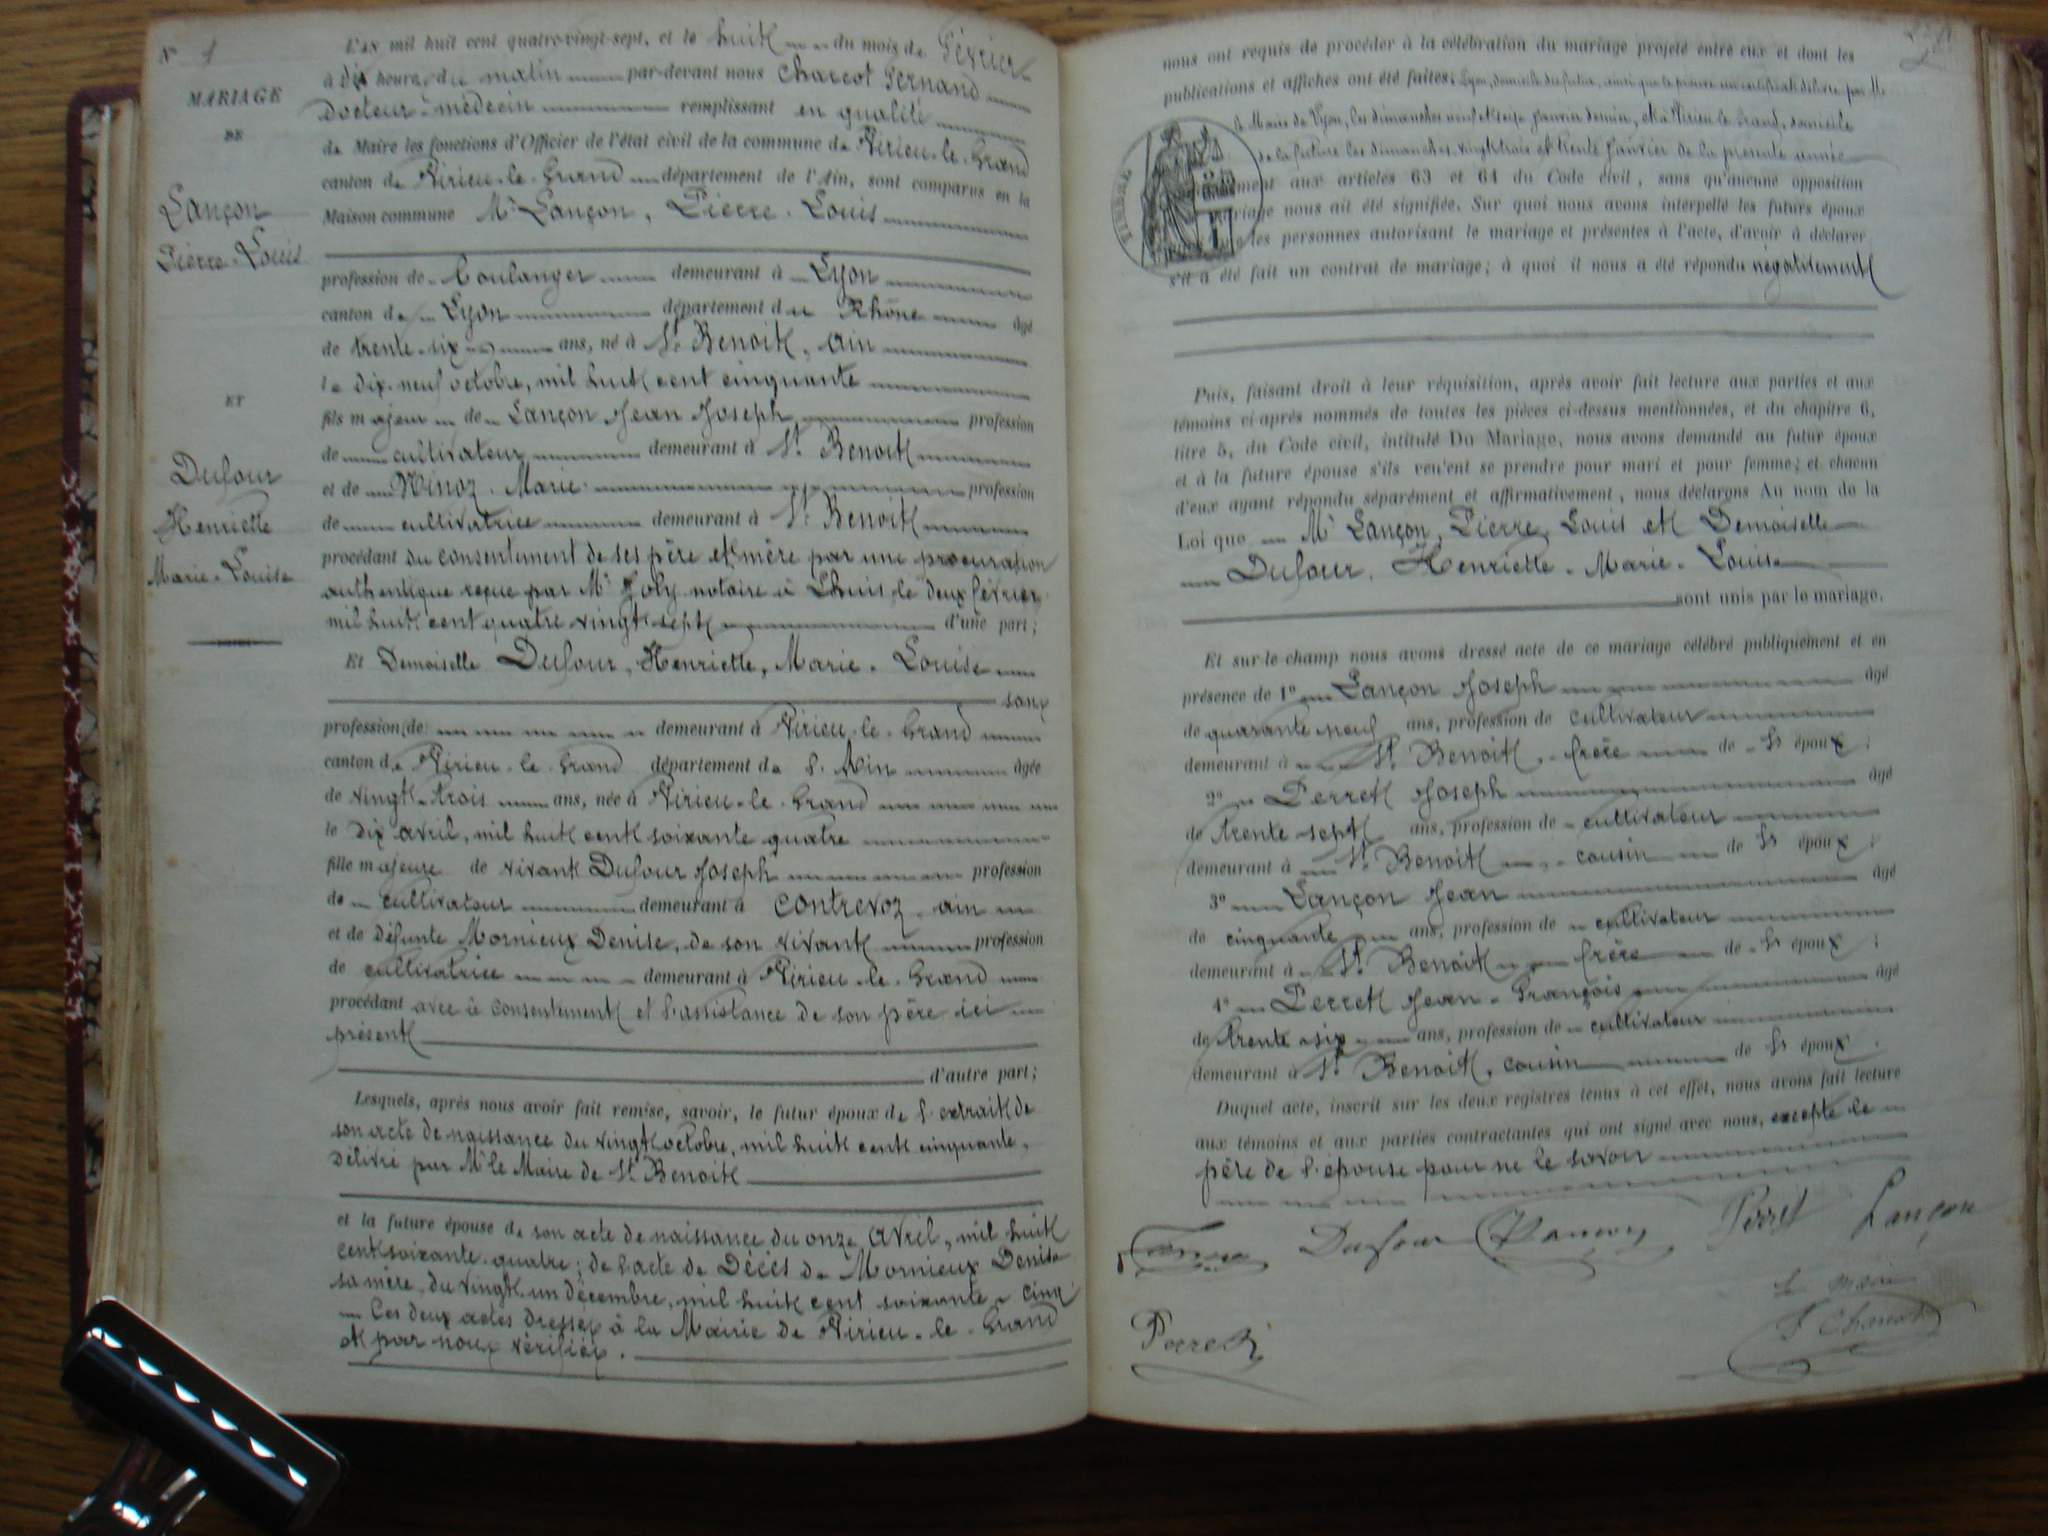 N° 1
MARIAGE
DE
Lançon
Pierre-Louis
ET
Dufour
Henriette
Marie-Louise
L'an mil huit cent quatre-vingt-sept, et le huit du mois de Février
à dix heures du matin par-devant nous Charcot Fernand
Docteur-médecin remplissant en qualité
de Maire les fonctions d'Officier de l'état civil de la commune de Virieu-le-Grand
canton de Virieu-le-Grand département de l'Ain, sont comparus en la
Maison commune Mr Lançon, Pierre-Louis
profession de boulanger demeurant à Lyon
canton de Lyon département du Rhône âgé
de trente-six ans, né à St Benoit, ain
le dix-neuf octobre, mil huit cent cinquante
fils majeur de Lançon Jean Joseph profession
de cultivateur demeurant à St Benoit
et de Ninoz Marie profession
de cultivatrice demeurant à St Benoit
procédant du consentement de ses père et mère par une procuration
authentique reçue par Me Joly notaire à Lhuis le deux février
mil huit cent quatre vingt sept d'une part;
Et Demoiselle Dufour, Henriette, Marie-Louise
sans
profession de demeurant à Virieu-le-Grand
canton de Virieu-le-Grand département de l'Ain âgée
de vingt-trois ans, née à Virieu-le-Grand
le dix avril, mil huit cent soixante quatre
fille majeure de vivant Dufour Joseph profession
de cultivateur demeurant à Contrevoz, ain
et de défunte Mornieux Denise, de son vivant profession
de cultivatrice demeurant à Virieu-le-Grand
procédant avec le consentement et l'assistance de son père ici
présent
d'autre part;
Lesquels, après nous avoir fait remise, savoir, le futur époux de l'extrait de
son acte de naissance du vingt octobre, mil huit cent cinquante,
délivré par Mr le Maire de St Benoit
et la future épouse de son acte de naissance du onze avril, mil huit
cent soixante-quatre; de l'acte de Décès de Mornieux Denise
sa mère, du vingt-un décembre, mil huit cent soixante-cinq
Ces deux actes dressés à la Mairie de Virieu-le-Grand
et par nous vérifiés.
nous ont requis de procéder à la célébration du mariage projeté entre eux et dont les
publications et affiches ont été faites: Lyon, domicile du futur, ainsi que le prouve un certificat délivré par M.
le Maire de Lyon, les dimanches neuf et seize janvier dernier, et à Virieu le Grand, domicile
de la future les dimanches vingt trois et trente janvier de la présente année
aux articles 63 et 64 du Code civil, sans qu'aucune opposition
mariage nous ait été signifiée. Sur quoi nous avons interpellé les futurs époux
les personnes autorisant le mariage et présentes à l'acte, d'avoir à déclarer
s'il a été fait un contrat de mariage; à quoi il nous a été répondu négativement
TIMBRE
Puis, faisant droit à leur réquisition, après avoir fait lecture aux parties et aux
témoins ci-après nommés de toutes les pièces ci-dessus mentionnées, et du chapitre 6,
titre 5, du Code civil, intitulé Du Mariage, nous avons demandé au futur époux
et à la future épouse s'ils veulent se prendre pour mari et pour femme; et chacun
d'eux ayant répondu séparément et affirmativement, nous déclarons Au nom de la
Loi que Mr Lançon, Pierre, Louis et Demoiselle
Dufour, Henriette-Marie-Louise
sont unis par le mariage.
Et sur-le-champ nous avons dressé acte de ce mariage célébré publiquement et en
présence de 1° Lançon Joseph âgé
de quarante neuf ans, profession de cultivateur
demeurant à St Benoit, frère de l'époux;
2° Perret Joseph âgé
de trente sept ans, profession de cultivateur
demeurant à St Benoit cousin de l'époux;
3° Lançon Jean âgé
de cinquante ans, profession de cultivateur
demeurant à St Benoit frère de l'époux;
4° Perret Jean-François âgé
de trente-six ans, profession de cultivateur
demeurant à St Benoit, cousin de l'époux.
Duquel acte, inscrit sur les deux registres tenus à cet effet, nous avons fait lecture
aux témoins et aux parties contractantes qui ont signé avec nous, excepté le
père de l'épouse pour ne le savoir
Dufour Perret Lançon
le maire
F Charcot
Perret